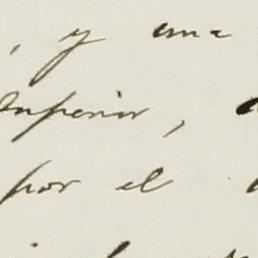 , y una
superior,
por el